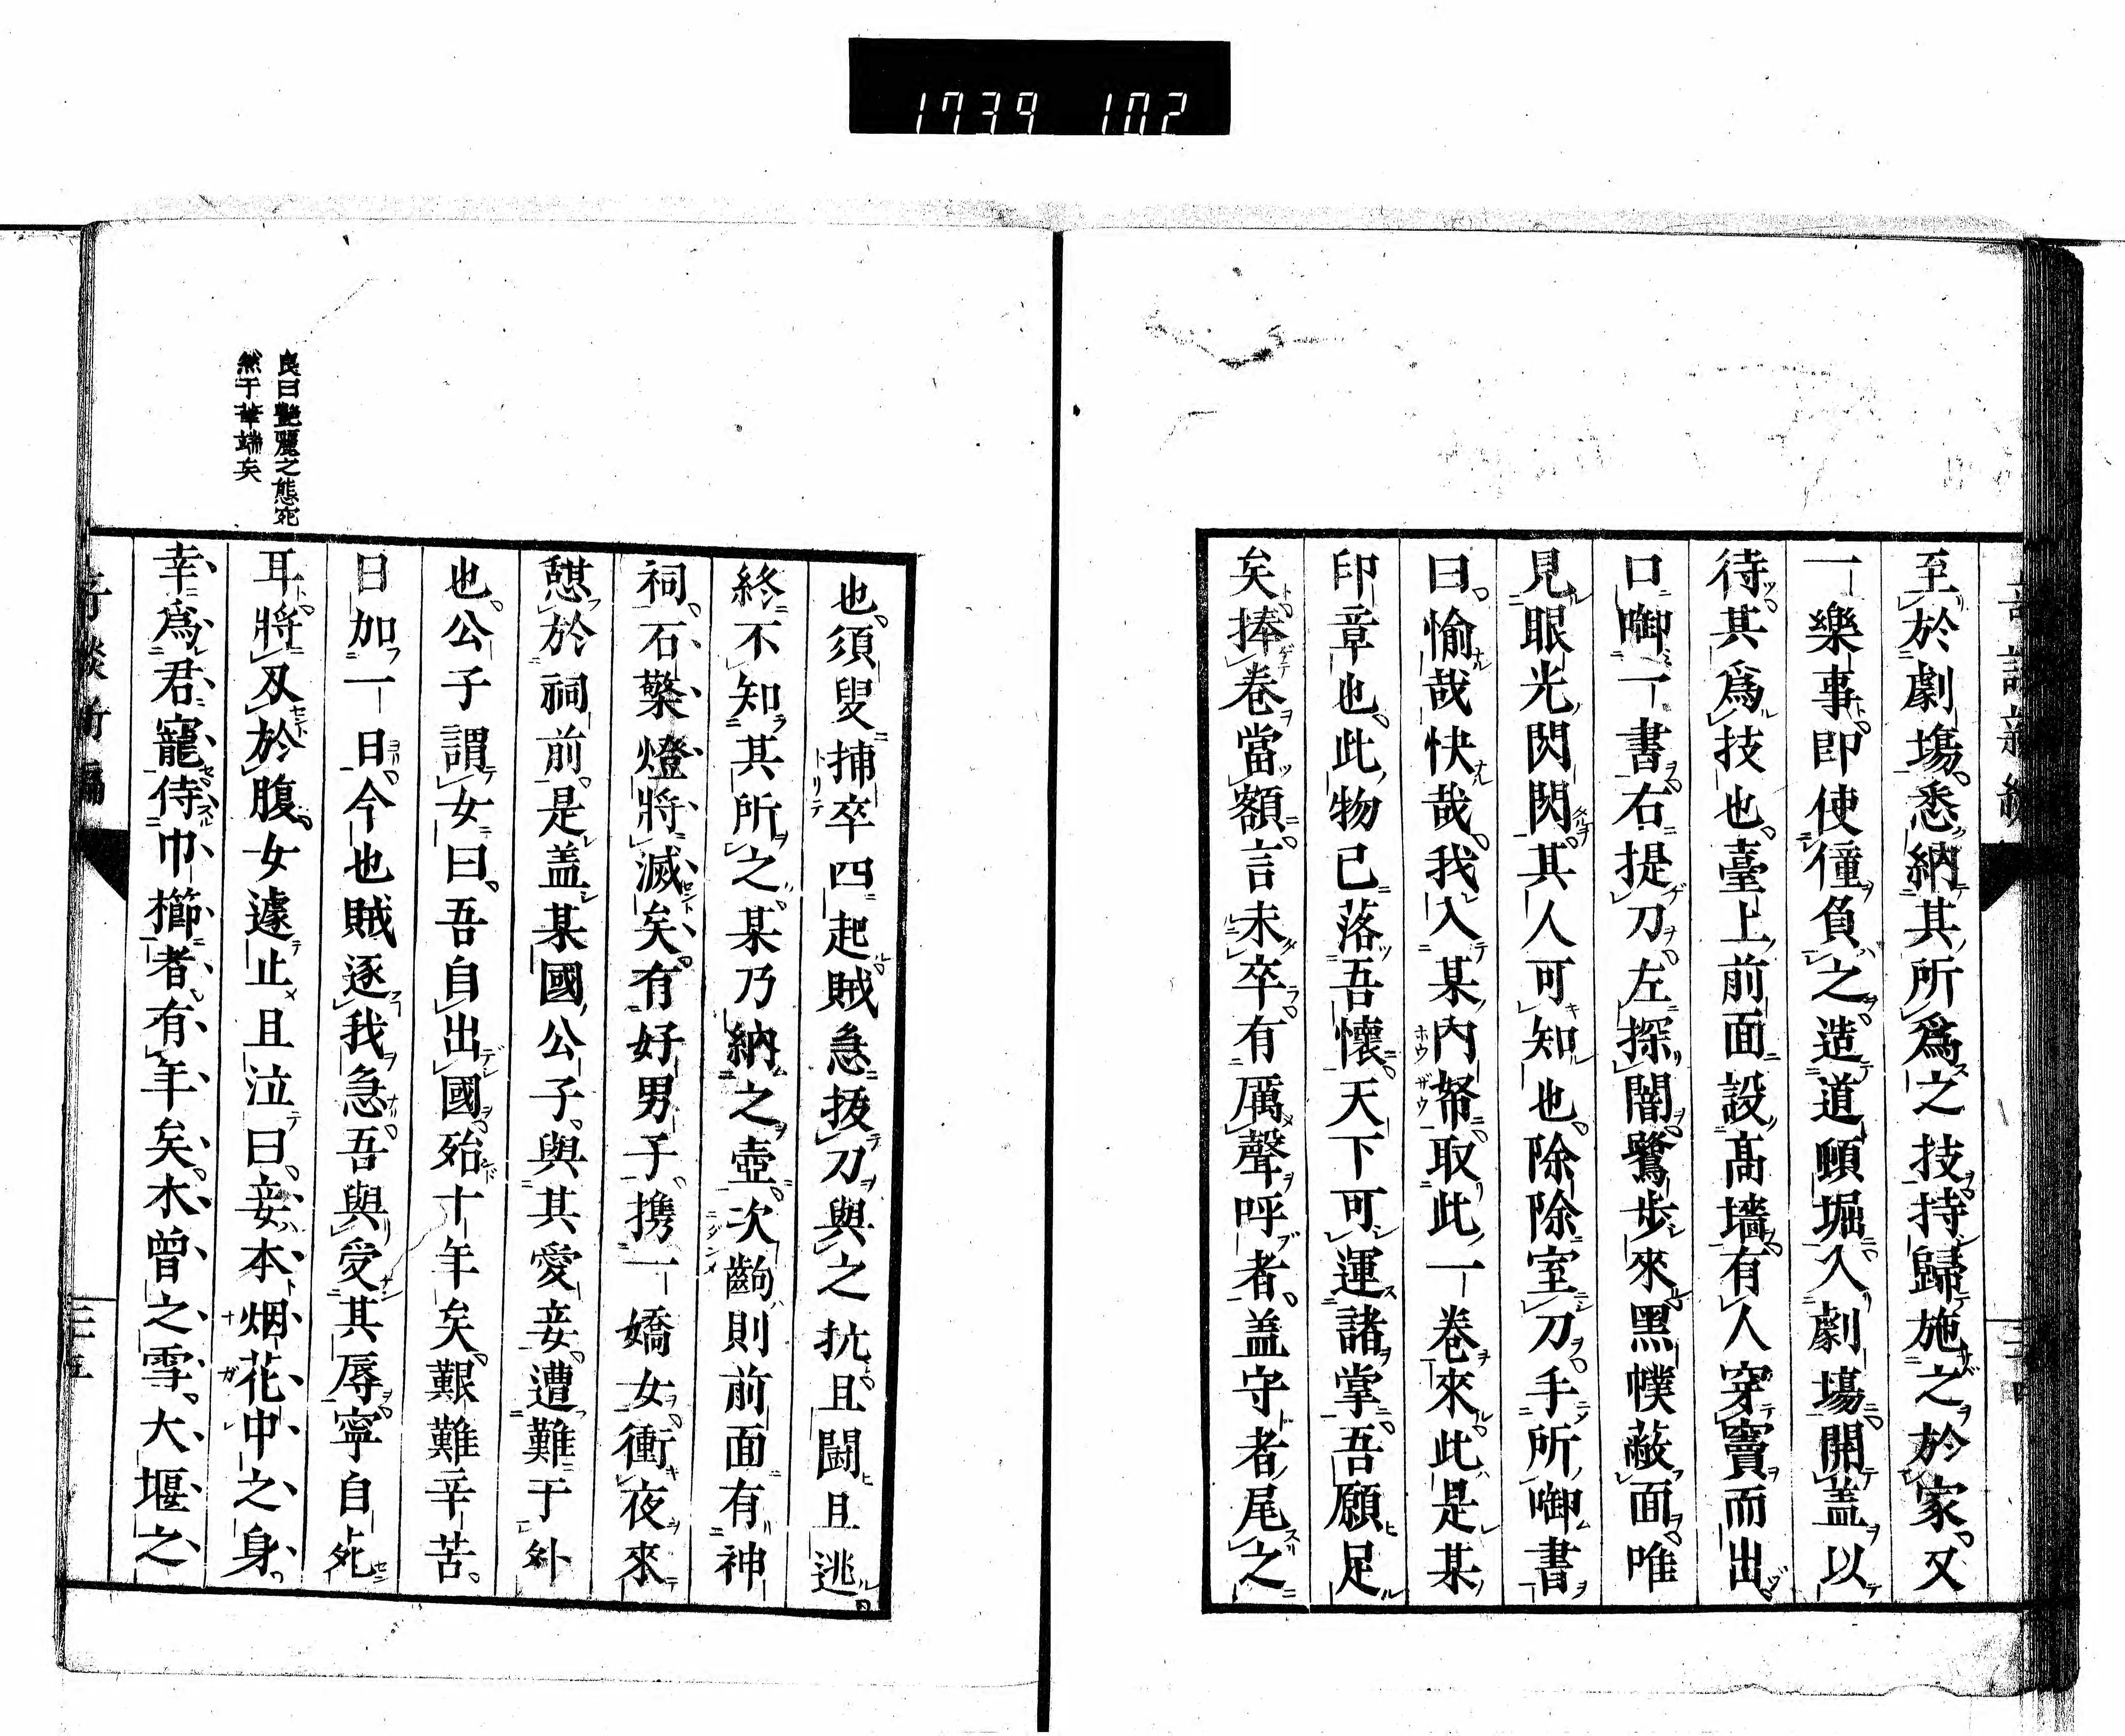 1739 102
至於劇塲悉納其所爲之技持歸施之於家又
一樂事即使僮負之造道頓堀入劇塲開盖以
待其爲技也臺上前面設髙墻有人穿竇而出
口啣一書右提刀左探闇鷺步來黑幞蔽面唯
見眼光閃閃其人可知也除除室刀手所啣書
曰愉哉快哉我入某內帑取此一卷來此是某
印章也此物已落吾懷天下可運諸掌吾願足
矣捧卷當額言未卒有厲聲呼者盖守者尾之
也須臾捕卒四起賊急拔刀與之抗且鬪且逃
終不知其所之某乃納之壺次齣則前面有神
祠石檠燈將滅矣有好男子携一嬌女衝夜來
憇於祠前是盖某國公子與其愛妾遭難于外
也公子謂女曰吾自出國殆十年矣艱難辛苦
日加一日今也賊逐我急吾與受其辱寧自死
耳將刄於腹女遽止且泣曰妾本烟花中之身
幸爲君寵侍巾櫛者有年矣木曾之雪大堰之
良曰艷麗之態宛
然于筆端矣